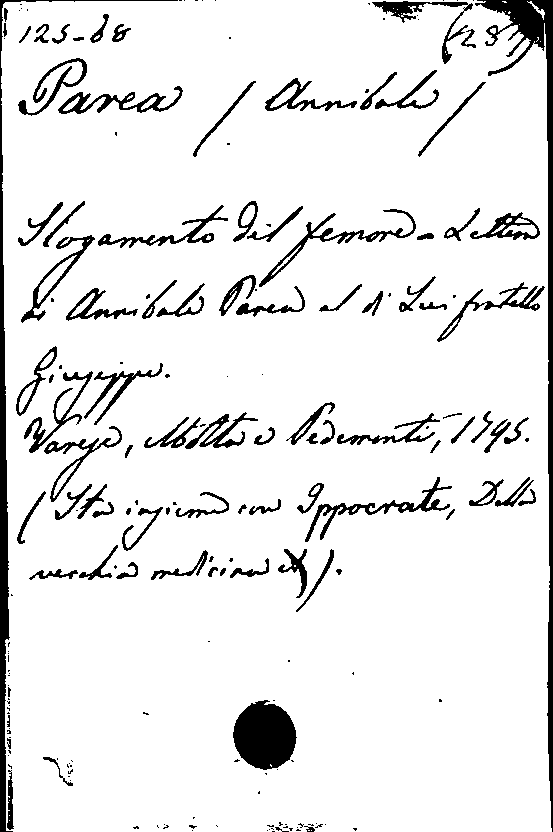 125-68 (287)
Parea / Annibale /
Slogamento del femore - Lettera
di Annibale Parea al di Lui fratello
Giuseppe.
Varese, Motta e Pedemonti, 1795.
(Sta insieme con Ippocrate, Della
vecchia medicina).